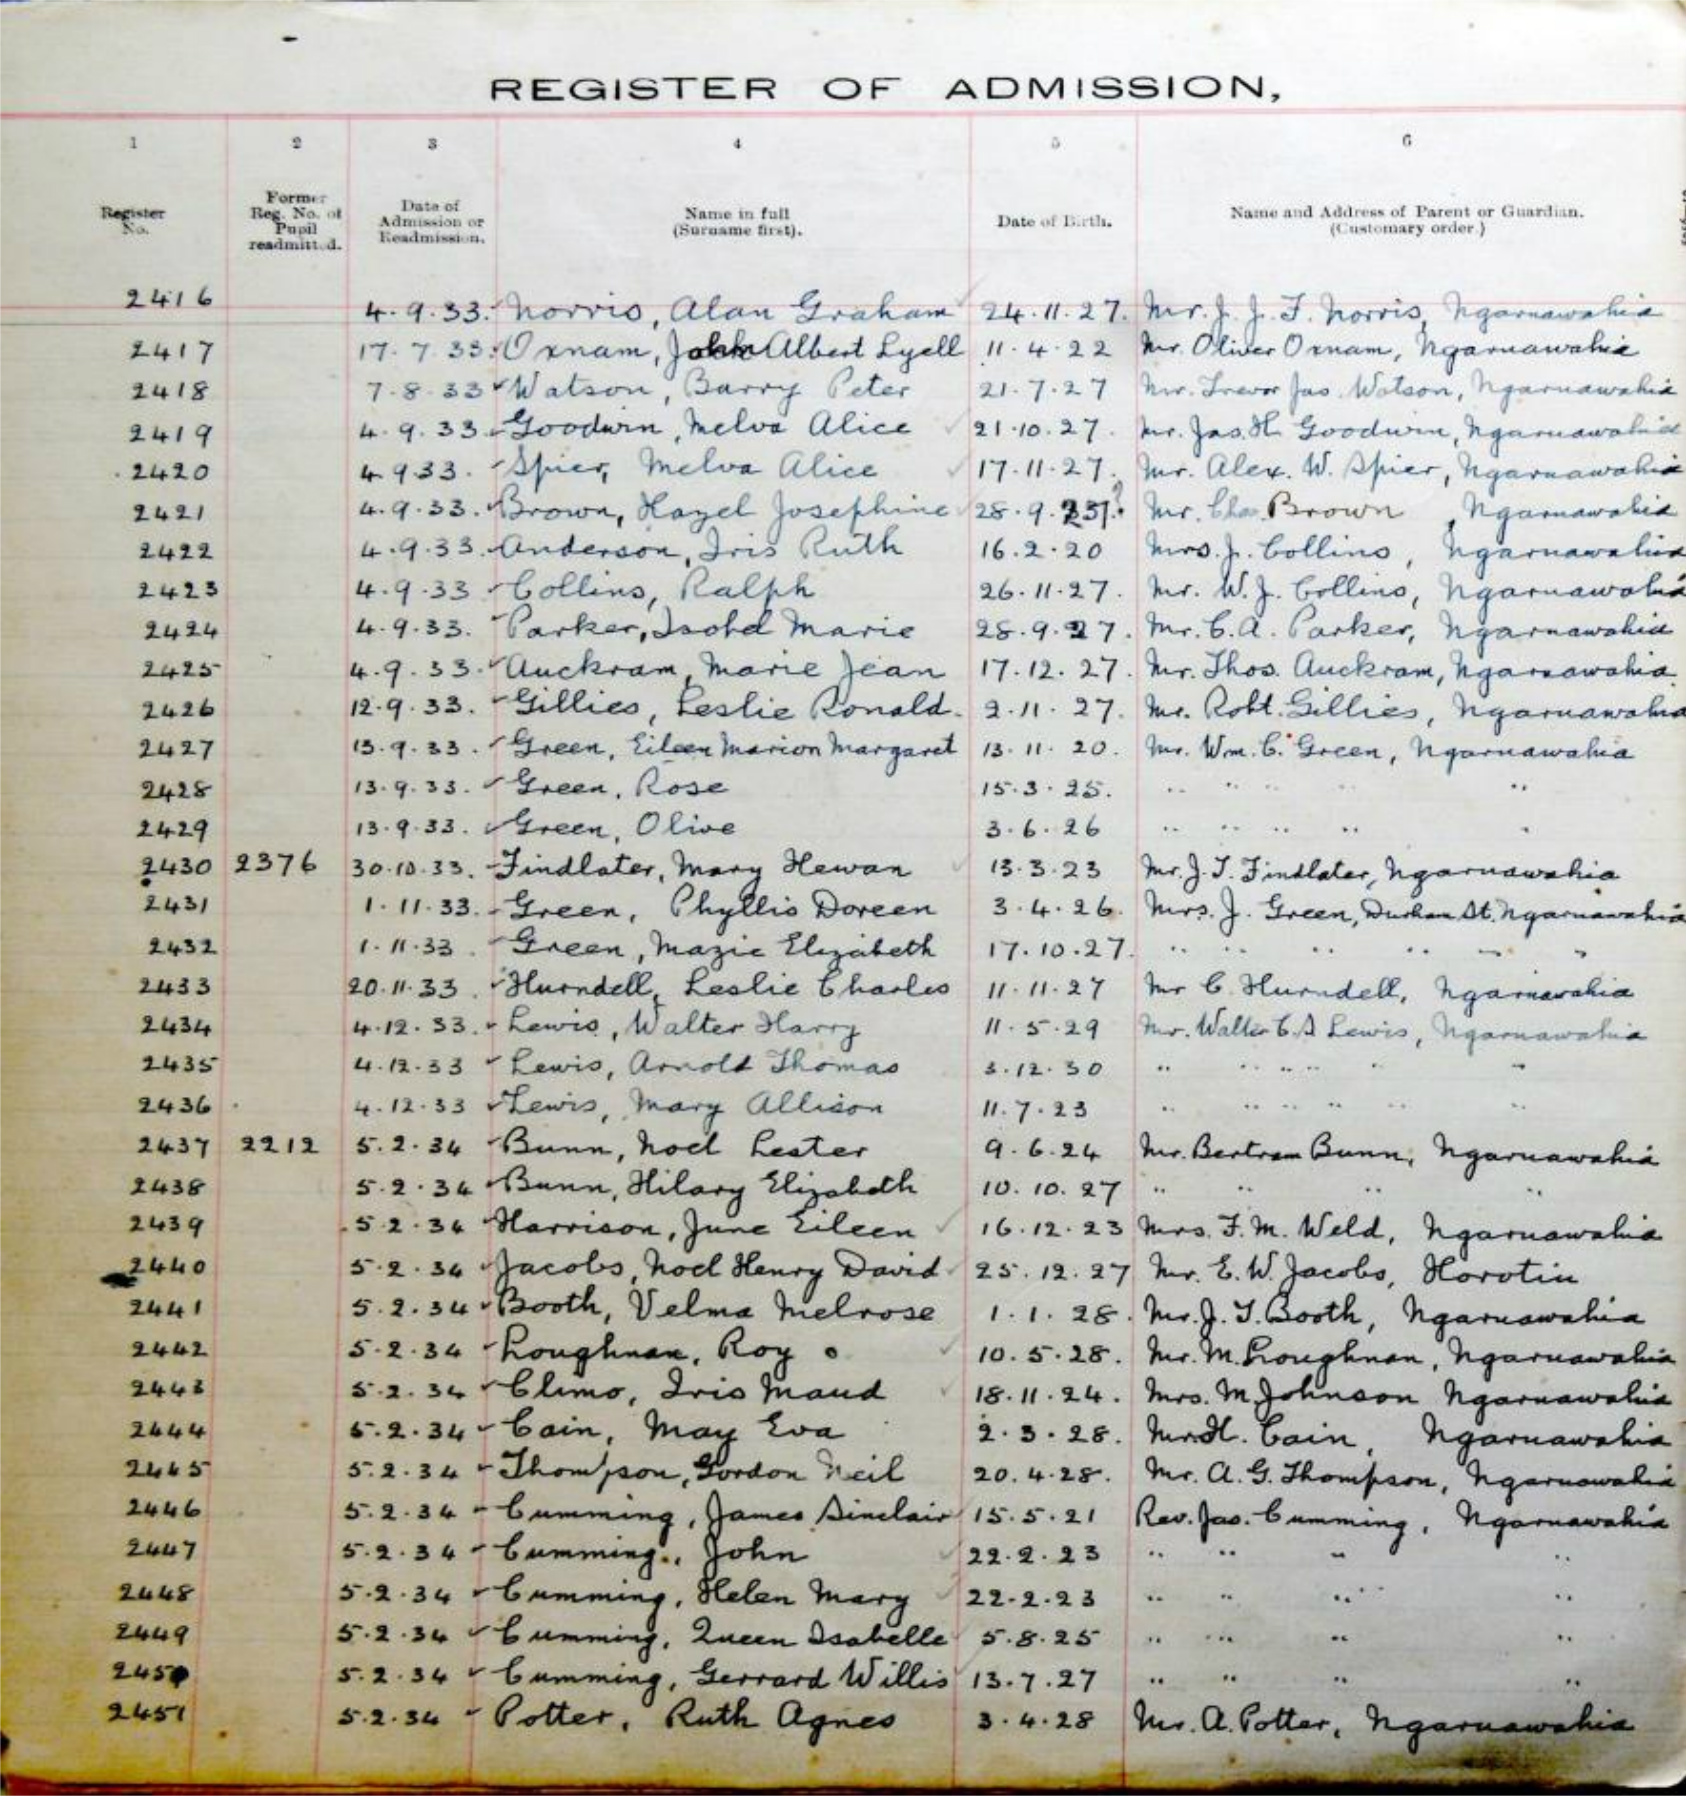 REGISTER OF ADMISSION,
1 2 3 4 5 6
Register No. Former Reg. No. of Pupil readmitted. Date of Admission or Readmission. Name in full (Surname first). Date of Birth. Name and Address of Parent or Guardian. (Customary order.)
2416 4.9.33. Norris, Alan Graham 24.11.27. Mr. J. J. F. Norris, Ngaruawahia
2417 17.7.33. Oxnam, John Albert Lyell 11.4.22 Mr. Oliver Oxnam, Ngaruawahia
2418 7.8.33 Watson, Barry Peter 21.7.27 Mr. Trevor Jas. Watson, Ngaruawahia
2419 4.9.33. Goodwin, Melva Alice 21.10.27. Mr. Jas. H. Goodwin, Ngaruawahia
2420 4.9.33. Spier, Melva Alice 17.11.27. Mr. Alex. W. Spier, Ngaruawahia
2421 4.9.33. Brown, Hazel Josephine 28.9. Mr. Chas. Brown, Ngaruawahia
2422 4.9.33. Anderson, Iris Ruth 16.2.20 Mrs. J. Collins, Ngaruawahia
2423 4.9.33 Collins, Ralph 26.11.27. Mr. W. J. Collins, Ngaruawahia
2424 4.9.33. Parker, Isobel Marie 28.9.27. Mr. C. A. Parker, Ngaruawahia
2425 4.9.33. Auckram, Marie Jean 17.12.27. Mr. Thos. Auckram, Ngaruawahia.
2426 12.9.33. Gillies, Leslie Ronald. 2.11.27. Mr. Robt. Gillies, Ngaruawahia
2427 13.9.33. Green, Eileen Marion Margaret 13.11.20. Mr. Wm. C. Green, Ngaruawahia
2428 13.9.33. Green, Rose 15.3.25. " " " " "
2429 13.9.33. Green, Olive 3.6.26 " " " " "
2430 2376 30.10.33. Findlater, Mary Hewan 13.3.23 Mr. J. T. Findlater, Ngaruawahia
2431 1.11.33. Green, Phyllis Doreen 3.4.26. Mrs. J. Green, Durham St. Ngaruawahia
2432 1.11.33. Green, Mazie Elizabeth 17.10.27. " " " " " "
2433 20.11.33. Hurndell, Leslie Charles 11.11.27 Mr C. Hurndell, Ngaruawahia
2434 4.12.33. Lewis, Walter Harry 11.5.29 Mr. Walter C. S Lewis, Ngaruawahia
2435 4.12.33 Lewis, Arnold Thomas 3.12.30 " " " " " "
2436 4.12.33 Lewis, Mary Allison 11.7.23 " " " " " "
2437 2212 5.2.34 Bunn, Noel Lester 9.6.24 Mr. Bertram Bunn, Ngaruawahia
2438 5.2.34 Bunn, Hilary Elizabeth 10.10.27 " " " "
2439 5.2.34 Harrison, June Eileen 16.12.23 Mrs. F. M. Weld, Ngaruawahia
2440 5.2.34 Jacobs, Noel Henry David 25.12.27 Mr. E. W. Jacobs, Horotiu
2441 5.2.34 Booth, Velma Melrose 1.1.28. Mr. J. T. Booth, Ngaruawahia
2442 5.2.34 Loughnan, Roy 10.5.28. Mr. M. Loughnan, Ngaruawahia
2443 5.2.34 Climo, Iris Maud 18.11.24. Mrs. M. Johnson Ngaruawahia
2444 5.2.34 Cain, May Eva 2.3.28. Mr. H. Cain, Ngaruawahia
2445 5.2.34 Thompson, Gordon Neil 20.4.28. Mr. A. G. Thompson, Ngaruawahia
2446 5.2.34 Cumming, James Sinclair 15.5.21 Rev. Jas. Cumming, Ngaruawahia
2447 5.2.34 Cumming, John 22.2.23 " " " "
2448 5.2.34 Cumming, Helen Mary 22.2.23 " " " "
2449 5.2.34 Cumming, Queen Isabelle 5.8.25 " " " "
2450 5.2.34 Cumming, Gerrard Willis 13.7.27 " " " "
2451 5.2.34 Potter, Ruth Agnes 3.4.28 Mr. A. Potter, Ngaruawahia